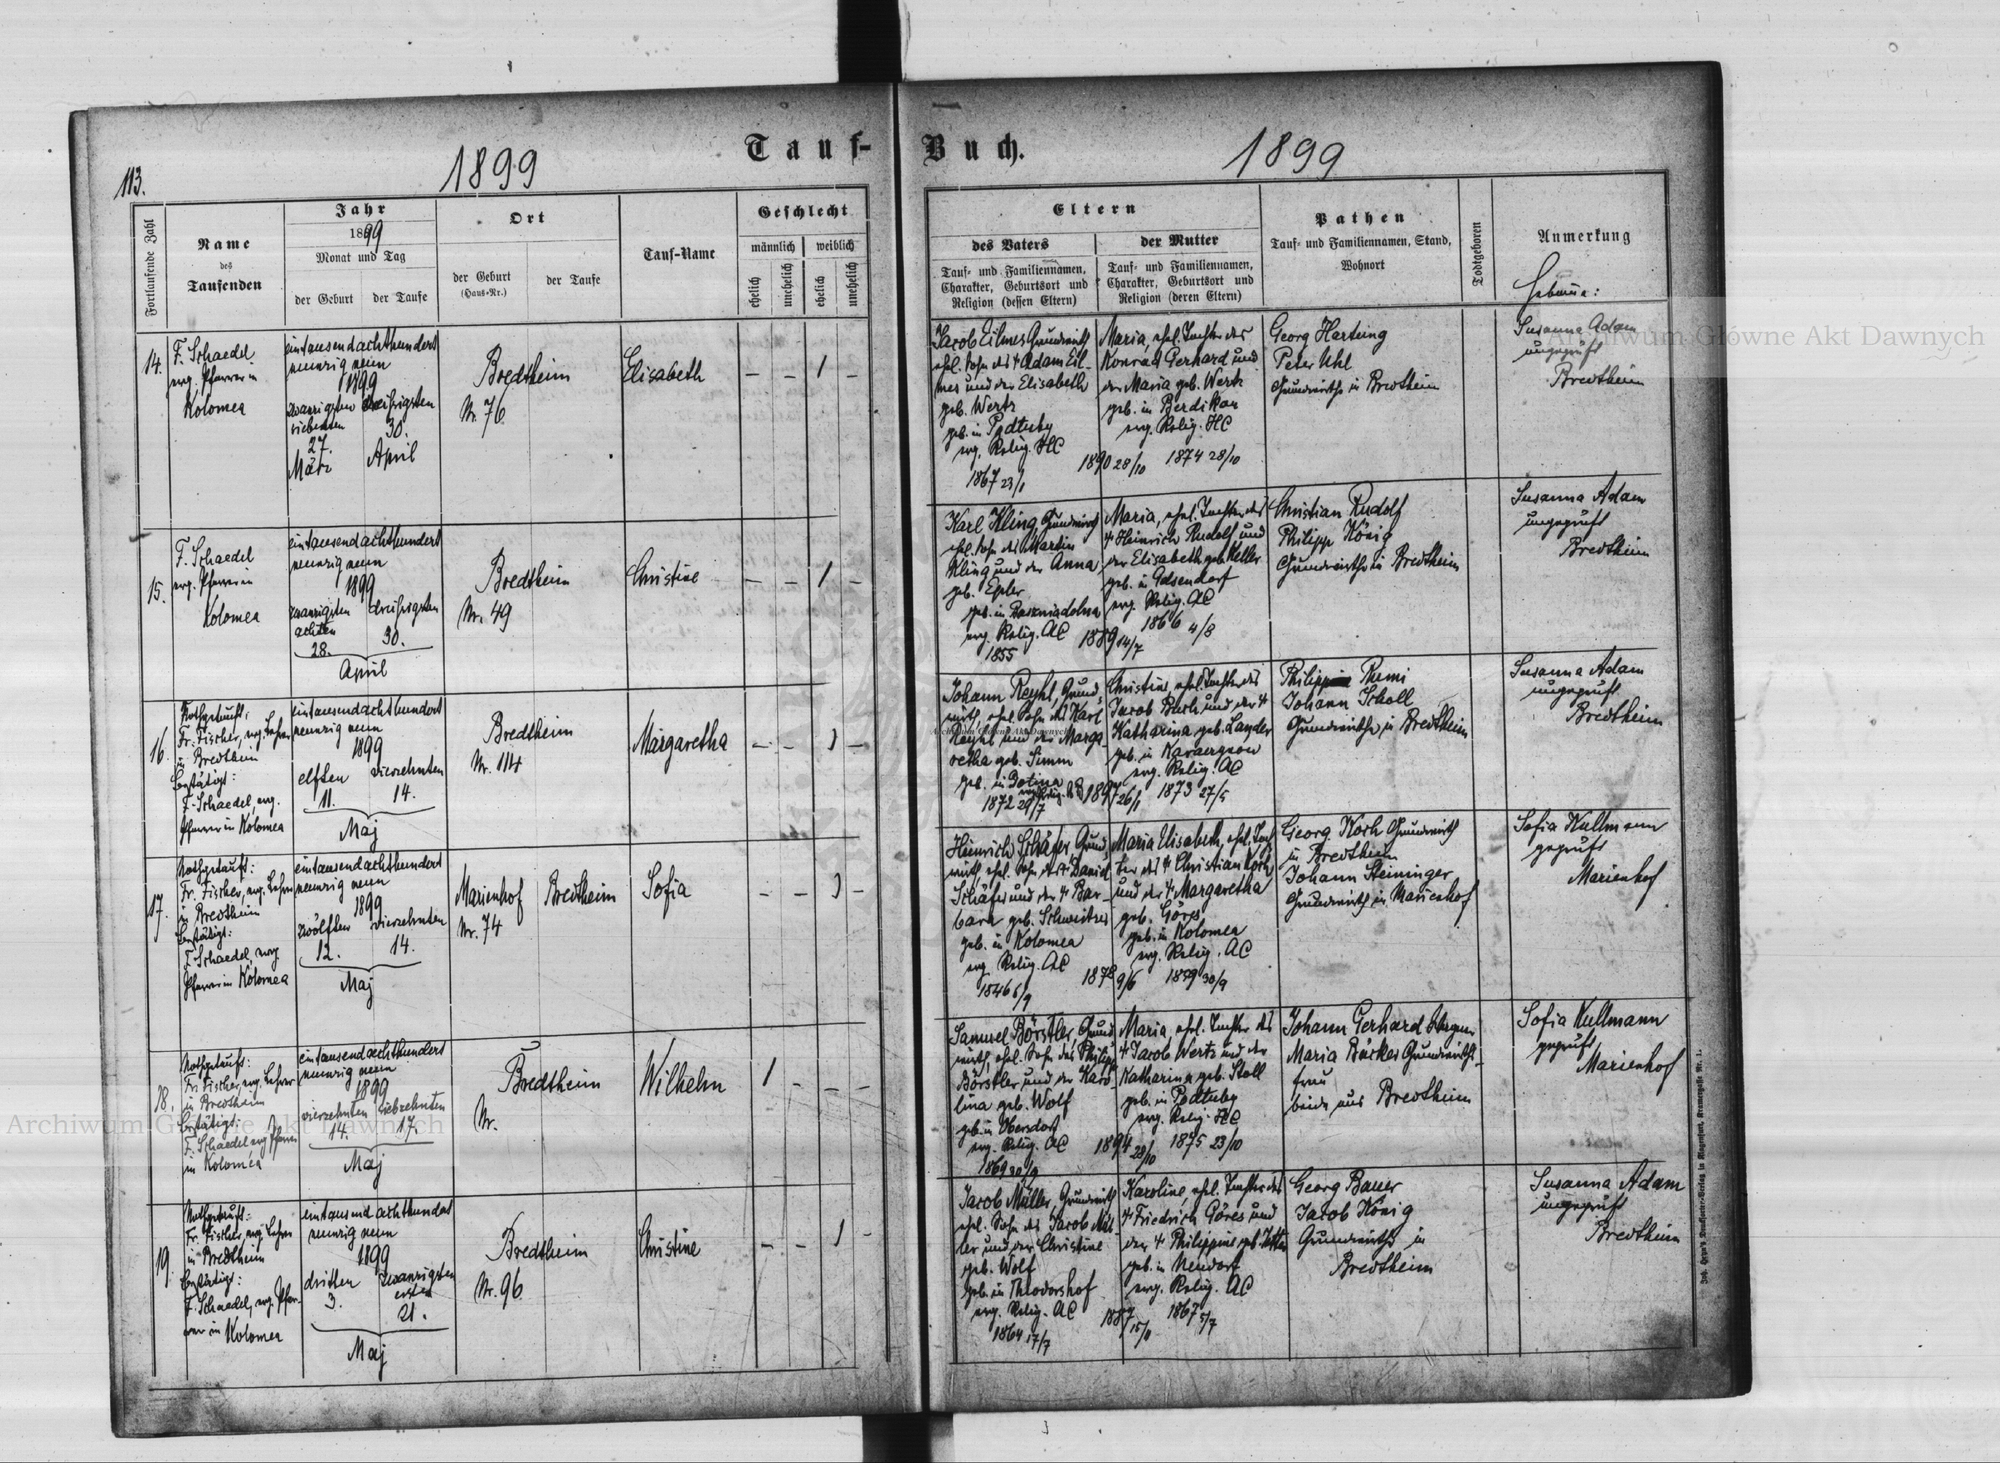 113.
1899
Tauf-
Fortlaufende Zahl
Name
des
Taufenden
Jahr
1899
Monat und Tag
der Geburt
der Taufe
Ort
der Geburt
(Haus-Nr.)
der Taufe
Tauf-Name
Geschlecht
männlich
weiblich
ehelich
unehelich
ehelich
unehelich
14.
F. Schaedel
evg. Pfarrer in
Kolomea
eintausendachthundert
neunzig neun
1899
zwanzigsten
siebenten
27.
März
dreißigsten
30.
April
Bredtheim
Nr. 76
Elisabeth
– – 1 –
15.
F. Schaedel
evg. Pfarrer in
Kolomea
eintausendachthundert
neunzig neun
1899
zwanzigsten
achten
28.
dreißigsten
30.
April
Bredtheim
Nr. 49
Christine
– – 1 –
16.
Nothgetauft:
Fr. Fischer, evg. Lehrer
in Bredtheim
bestätigt:
F. Schaedel, evg.
Pfarrer in Kolomea
eintausendachthundert
neunzig neun
1899
elften
11.
vierzehnten
14.
Maj
Bredtheim
Nr. 114
Margaretha
– – 1 –
17.
Nothgetauft:
Fr. Fischer, evg. Lehrer
in Bredtheim
bestätigt:
F. Schaedel, evg.
Pfarrer in Kolomea
eintausendachthundert
neunzig neun
1899
zwölften
12.
vierzehnten
14.
Maj
Marienhof
Nr. 74
Bredtheim
Sofia
– – 1 –
18.
Nothgetauft:
Fr. Fischer, evg. Lehrer
in Bredtheim
bestätigt:
F. Schaedel evg Pfarrer
in Kolomea
eintausendachthundert
neunzig neun
1899
vierzehnten
14.
siebzehnten
17.
Maj
Bredtheim
Nr.
Wilhelm
1 – – –
19.
Nothgetauft:
Fr. Fischer, evg. Lehrer
in Bredtheim
bestätigt:
F. Schaedel, evg. Pfar-
rer in Kolomea
eintausendachthundert
neunzig neun
1899
dritten
3.
zwanzigsten
ersten
21.
Maj
Bredtheim
Nr. 96
Christine
– – 1 –
Buch.
1899
Eltern
des Vaters
Tauf- und Familiennamen,
Charakter, Geburtsort und
Religion (dessen Eltern)
der Mutter
Tauf- und Familiennamen,
Charakter, Geburtsort und
Religion (deren Eltern)
Pathen
Tauf- und Familiennamen, Stand,
Wohnort
Todtgeboren
Anmerkung
Hebamme:
Jacob Eilmes Grundwirth
ehel. Sohn des † Adam Eil-
mes und der Elisabeth
geb. Wertz
geb. in
evg. Relig. HC
1867 23/1
1890 28/10
Maria, ehel. Tochter des
Konrad Gerhard und
der Maria geb. Wertz
geb. in Berdikau
evg. Relig. HC
1874 28/10
Georg Harteing
Peter Uhl
Grundwirthe in Bredtheim
Susanna Adam
ungeprüft
Bredtheim
Karl Kling, Grundwirth
ehel. Sohn des Martin
Kling und der Anna
geb. Epler
geb. in
evg. Relig. AC
1855
1889 14/7
Maria, ehel. Tochter des
† Heinrich Rudolf und
der Elisabeth geb. Keller
geb. in Gelsendorf
evg. Relig. AC
1866 4/8
Christian Rudolf
Philipp König
Grundwirthe in Bredtheim
Susanna Adam
ungeprüft
Bredtheim
Johann Reyhl, Grund-
wirth, ehel. Sohn des Karl
Reyhl und der Marga-
retha geb. Simm
geb. in
evg. Relig. AC
1872 29/7
1897 26/1
Christine, ehel. Tochter des
Jacob und der †
Katharina geb.
geb. in
evg. Relig. AC
1873 27/5
Johann Scholl
Grundwirthe in Bredtheim
Susanna Adam
ungeprüft
Bredtheim
Heinrich Schäfer Grund-
wirth, ehel. Sohn des † Daniel
Schäfer und der † Bar-
bara geb. Schweitzer
geb. in Kolomea
evg. Relig. AC
1846 6/9
1878 9/6
Maria Elisabeth, ehel. Toch-
ter des † Christian Koch
und der † Margaretha
geb. Göres
geb. in Kolomea
evg. Relig. AC
1859 30/9
Georg Koch Grundwirth
in Bredtheim
Johann Steininger
Grundwirth in Marienhof
Sofia Kullmann
geprüft
Marienhof
Samuel Börstler, Grund-
wirth, ehel. Sohn des Philipp
Börstler und der Karo-
lina geb. Wolf
geb. in Obersdorf
evg. Relig. AC
1869 30/9
1894 28/10
Maria, ehel. Tochter des
† Jacob Wertz und der
Katharina geb. Stoll
geb. in
evg. Relig. HC
1875 23/10
Johann Gerhard
Maria Bäcker Grundwirths-
frau
beide aus Bredtheim
Sofia Kullmann
geprüft
Marienhof
Jacob Müller, Grundwirth
ehel. Sohn des Jacob Mül-
ler und der Christine
geb. Wolf
geb. in Theodorshof
evg. Relig. AC
1864 17/7
1887
Karoline, ehel. Tochter des
† Friedrich Göres und
der † Philippine geb.
geb. in Neudorf
evg. Relig. AC
1867 5/7
Georg Bauer
Jacob König
Grundwirthe in
Bredtheim
Susanna Adam
ungeprüft
Bredtheim
Archiwum Główne Akt Dawnych
Archiwum Główne Akt Dawnych
Archiwum Główne Akt Dawnych